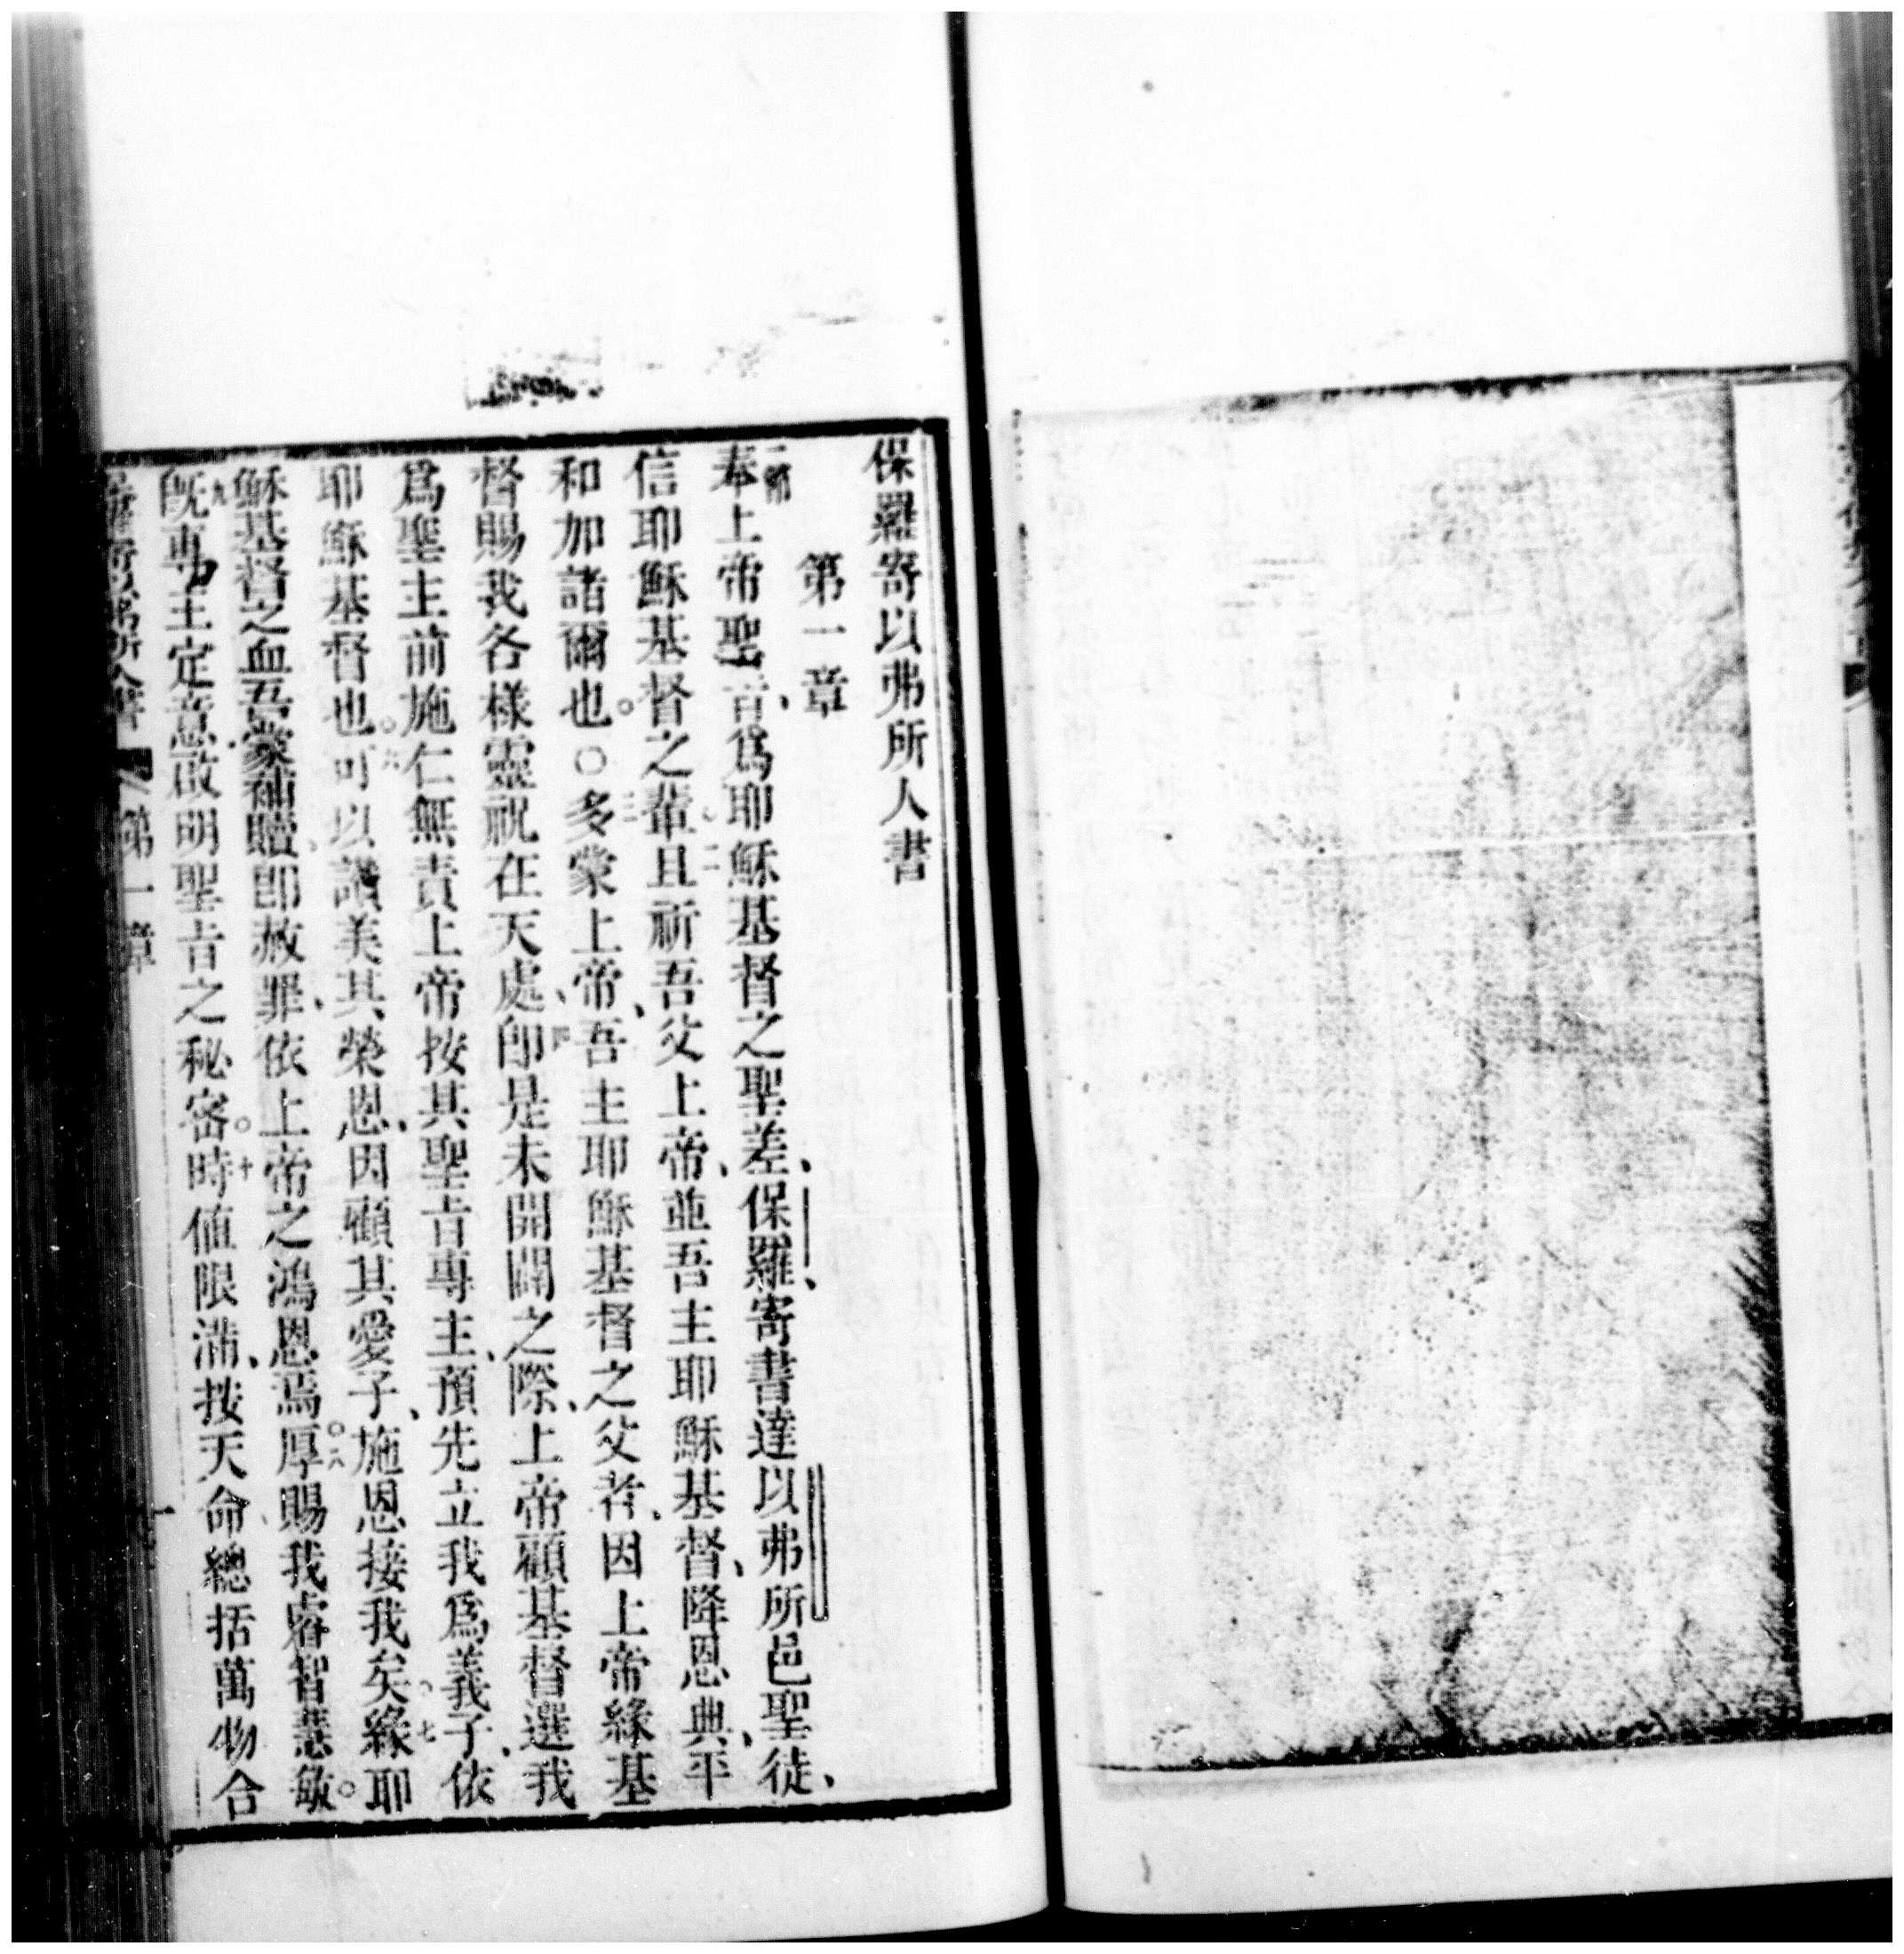 保羅寄以弗所人書
第一章
一節奉上帝聖旨、爲耶穌基督之聖差、保羅、寄書達以弗所邑聖徒、
信耶穌基督之輩。二且祈吾父上帝、並吾主耶穌基督、降恩典、平
和加諸爾也。○三多蒙上帝、吾主耶穌基督之父者、因上帝緣基
督賜我各樣靈祝在天處、四即是未開闢之際、上帝顧基督選我
爲聖主前施仁無責上帝按其聖旨專主、預先立我爲義子、依
耶穌基督也。六可以讚美其榮恩、因顧其愛子、施恩接我矣。七緣耶
穌基督之血吾蒙補贖、即赦罪、依上帝之鴻恩焉。八厚賜我睿智慧敏。
九旣專主定意、啟明聖旨之秘密。十時値限滿、按天命、總括萬物合
第一章